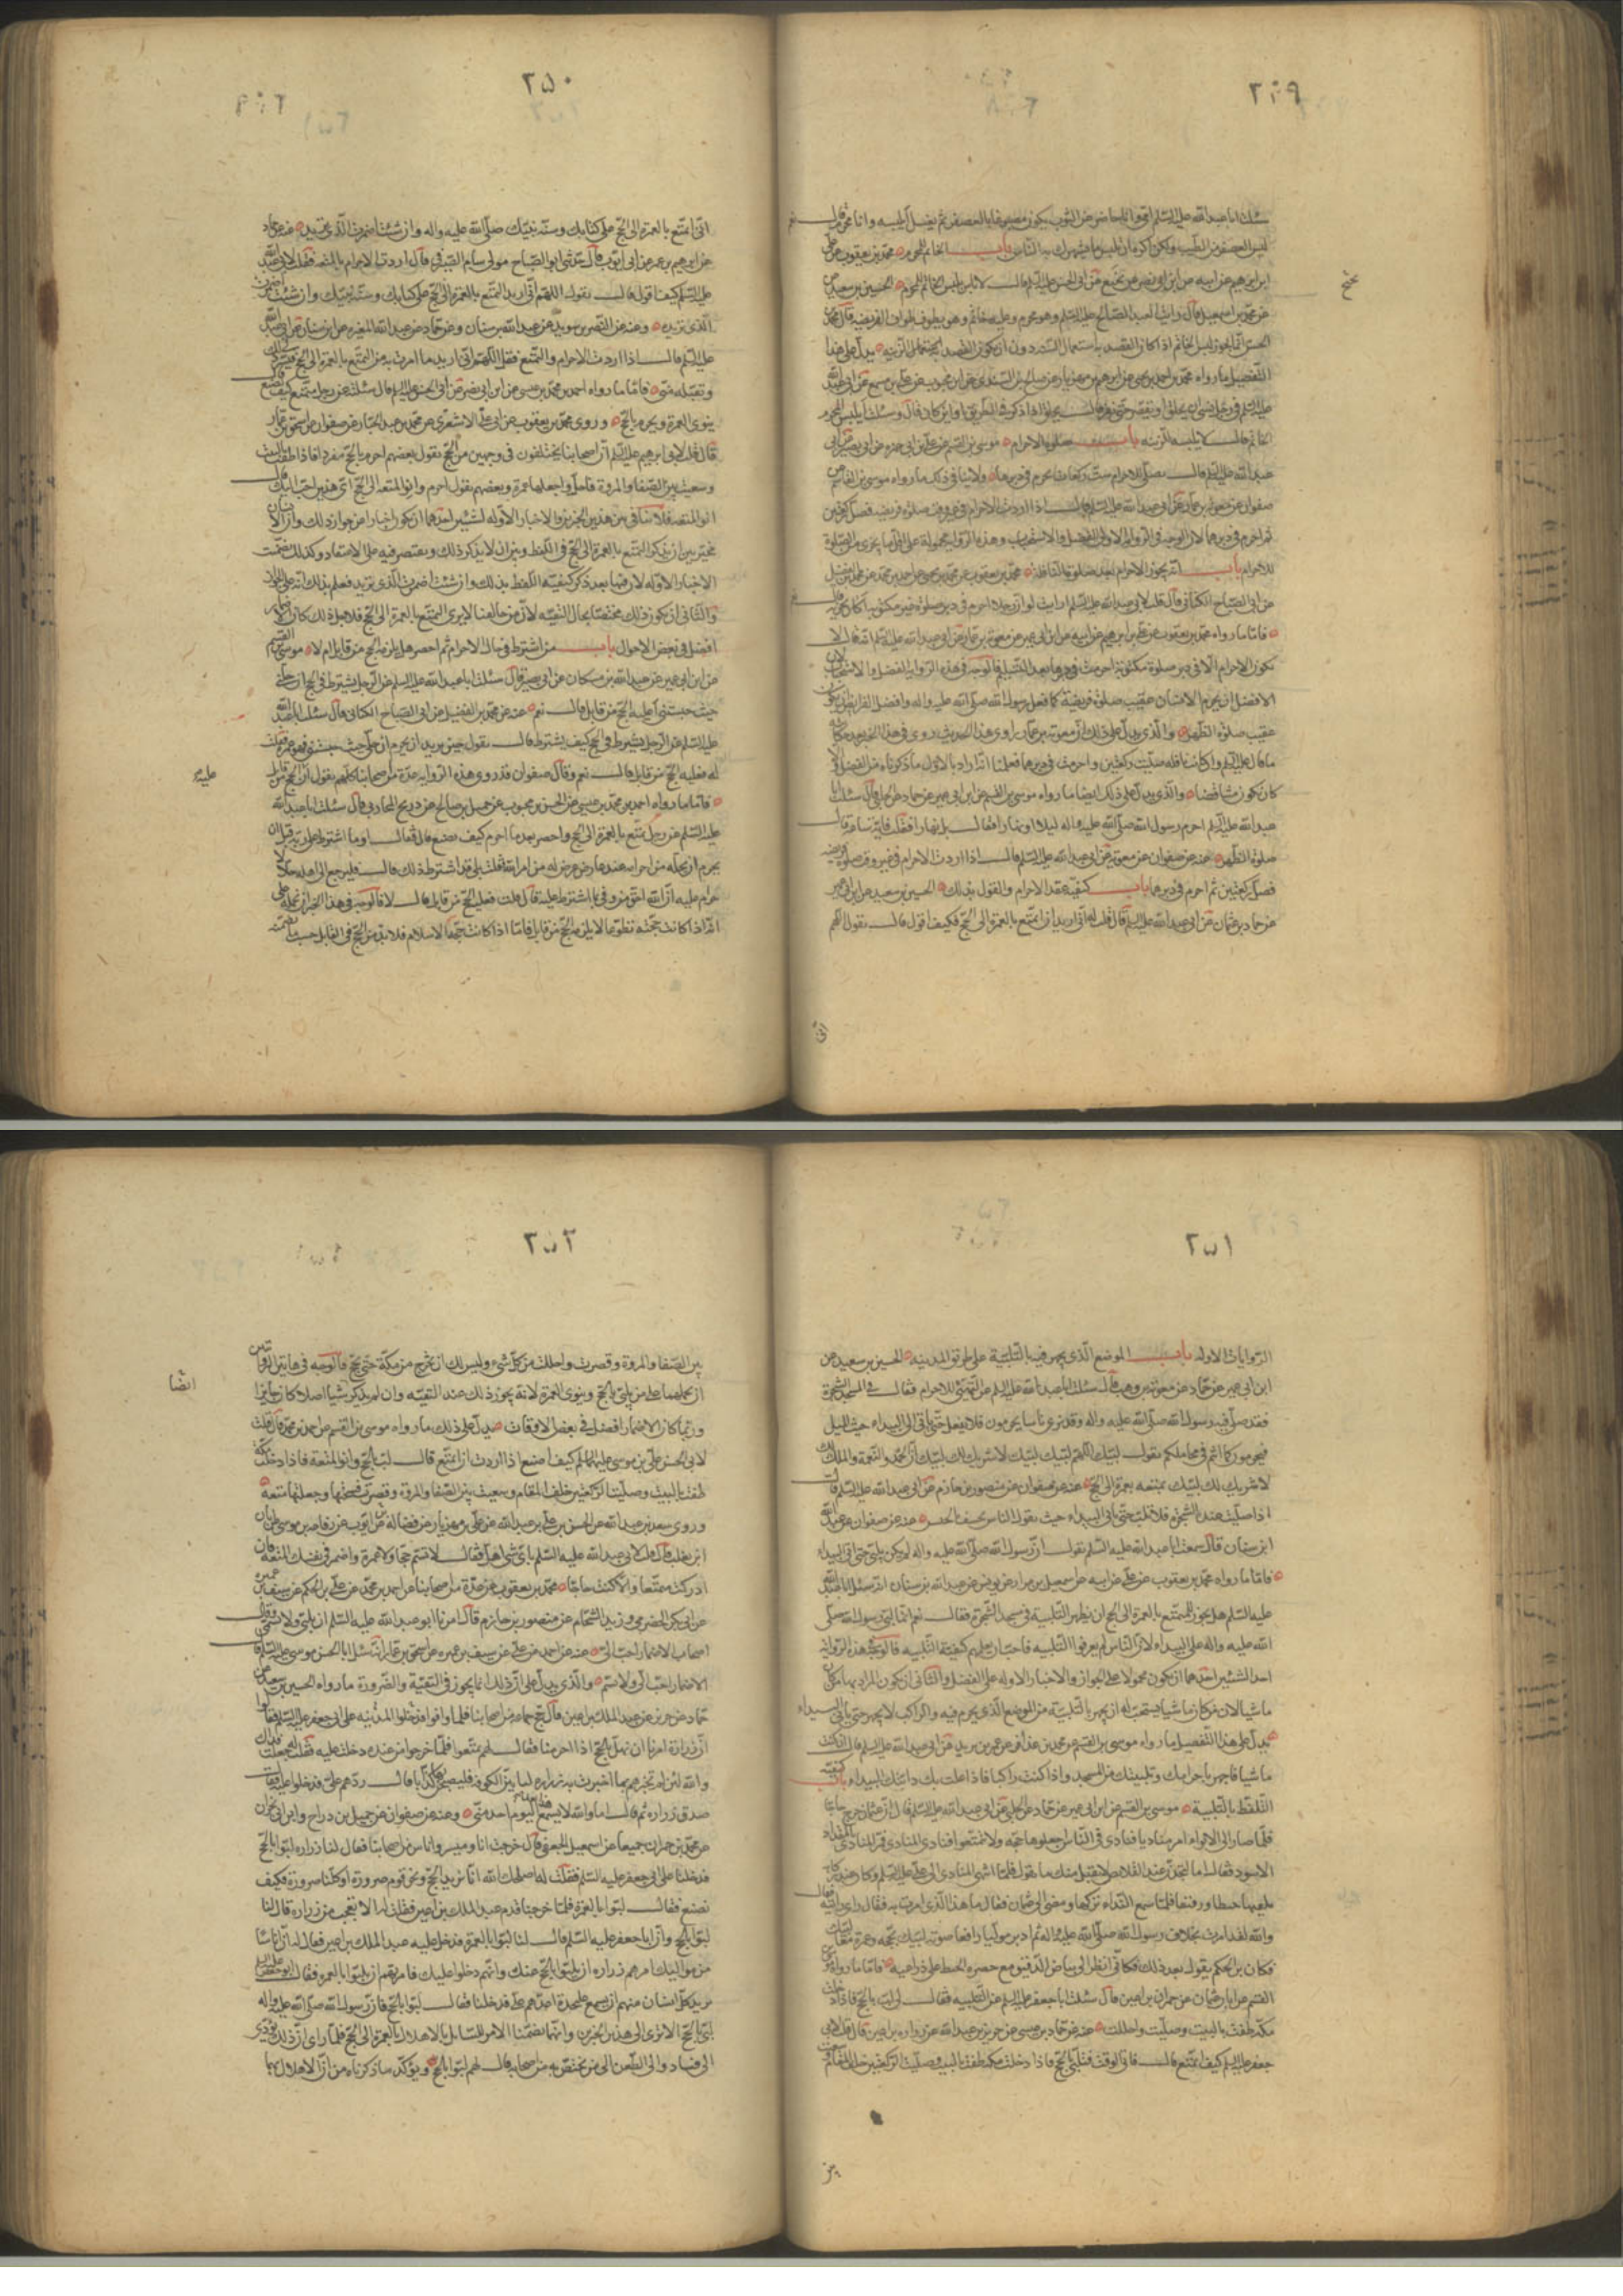 ٢٤٩
سئلت ابا عبد الله عليه السلم وانا حاضر عن الثوب يكون مصبوغا بالعصفر ثم يغسل البسه وانا محرم قال نعم
ليس العصفر من الطيب ولكن اكره ان تلبس ما يشهرك به الناس باب الخاتم للمحرم محمد بن يعقوب عن علي
ابن ابرهيم عن ابيه عن ابن ابي نصر عن نجيح عن ابي الحسن عليه السلم قال لا باس بلبس الخاتم للمحرم الحسين بن سعيد عن
محمد بن اسمعيل قال رايت العبد الصالح عليه السلم وهو محرم وعليه خاتم وهو يطوف طواف الفريضه قال محمد بن
الحسن انما يجوز لبس الخاتم اذا كان القصد به استعمال السنه دون ان يكون القصد به الزينه يدل على هذا
التفصيل ما رواه محمد بن احمد بن يحيى عن ابرهيم بن مهزيار عن صالح بن السندي عن ابن محبوب عن علي عن مسمع عن ابي عبد الله
عليه السلم
الخاتم قال لا يلبسه للزينه باب صلوة الاحرام موسى بن القسم عن علي بن ابي حمزه عن ابي بصير عن ابي
عبد الله عليه السلم قال تصلى للاحرام ست ركعات تحرم في دبرها ولا ينافي ذلك ما رواه موسى بن القاسم عن
صفوان عن معوية بن عمار عن ابي عبد الله عليه السلم قال اذا اردت الاحرام في غير وقت صلوة فريضه فصل ركعتين
ثم احرم في دبرهما لان الوجه في الروايه الاولى الفضل والاستحباب وهذه الروايه محمولة على اقل ما يجزي من الصلوة
للاحرام باب انه يجوز الاحرام بعد صلوة النافلة محمد بن يعقوب عن محمد بن يحيى عن احمد بن محمد عن محمد بن الفضيل
عن ابي الصباح الكناني قال قلت لابي عبد الله عليه السلم ارايت لو ان رجلا احرم في دبر صلوة غير مكتوبه اكان يجزيه قال نعم
فاما ما رواه محمد بن يعقوب عن علي بن ابرهيم عن ابيه عن ابن ابي عمير عن معوية بن عمار عن ابي عبد الله عليه السلم انه قال لا
يكون الاحرام الا في دبر صلوة مكتوبة احرمت في دبرها بعد التسليم فالوجه في هذه الروايه الفضل والاستحباب لان
الافضل ان يحرم الانسان عقيب صلوة فريضة كما فعل رسول الله صلى الله عليه واله وافضل الفرائض ان يكون
عقيب صلوة الظهر والذي يدل على ذلك ان معوية بن عمار راوي هذا الحديث روى في هذا الخبر بعد حكاية
ما قال عليه السلم وان كانت نافله صليت ركعتين واحرمت في دبرهما فعلمنا انه اراد بالاول ما ذكرناه من الفضل
كان يكون متناقضا والذي يدل على ذلك ايضا ما رواه موسى بن القسم عن ابن ابي عمير عن حماد عن الحلبي قال سئلت ابا
عبد الله عليه السلم احرم رسول الله صلى الله عليه واله ليلا او نهارا فقال بل نهارا فقلت فاية ساعة قال
صلوة الظهر عنه عن صفوان عن معوية عن ابي عبد الله عليه السلم قال اذا اردت الاحرام في غير وقت صلوة فريضه
فصل ركعتين ثم احرم في دبرهما باب كيفية عقد الاحرام والقول بذلك الحسين بن سعيد عن ابن ابي عمير
عن حماد بن عثمان عن ابي عبد الله عليه السلم قال قلت له اني اريد ان اتمتع بالعمرة الى الحج فكيف اقول قال تقول اللهم
اني
٢٥٠
اني اتمتع بالعمرة الى الحج على كتابك وسنة نبيك صلى الله عليه واله وان شئت اضمرت الذي تريد عنه عن حماد
عن ابرهيم بن عمر عن ابي ايوب قال حدثني ابو الصباح مولى بسام الصيرفي قال اردت الاحرام بالمتعه فقلت لابي عبد الله
عليه السلم كيف اقول قال تقول اللهم اني اريد التمتع بالعمرة الى الحج على كتابك وسنة نبيك وان شئت اضمرت
الذي تريد وعنه عن النضر بن سويد عن عبد الله بن سنان وعن حماد عن عبد الله بن المغيره عن ابن سنان عن ابي عبد الله
عليه السلم قال اذا اردت الاحرام والتمتع فقل اللهم اني اريد ما امرت به من التمتع بالعمرة الى الحج فيسر لي ذلك
وتقبله مني فاما ما رواه احمد بن محمد بن عيسى عن ابن ابي نصر عن ابي الحسن عليه السلم قال سئلته عن رجل متمتع كيف يصنع قال
ينوي العمرة ويحرم بالحج وروى محمد بن يعقوب عن ابي علي الاشعري عن محمد بن عبد الجبار عن صفوان عن اسحق بن عمار
قال قلت لابي ابرهيم عليه السلم ان اصحابنا يختلفون في وجهين من الحج يقول بعضهم احرم بالحج مفردا فاذا طفت بالبيت
وسعيت بين الصفا والمروة فاحل واجعلها عمرة وبعضهم يقول احرم وانو المتعه الى الحج اي هذين احب اليك قال
انو المتعه فلا تنافي بين هذين الخبرين والاخبار الاوله لشيئين احدهما ان يكون اخبارا عن جواز ذلك وان الانسان
مخير بين ان يذكر التمتع بالعمرة الى الحج في اللفظ وبين ان لا يذكر ذلك ويقتصر فيه على الاعتقاد وكذلك تضمنت
الاخبار الاوله لان فيها بعد ذكر كيفيته اللفظ بذلك وان شئت اضمرت الذي تريد فعلم بذلك انه على الجواز
والثاني ان يكون ذلك مختصا بحال التقيه لان من خالفنا لا يرى التمتع بالعمرة الى الحج فلاجل ذلك كان الاضمار
افضل في بعض الاحوال باب من اشترط في حال الاحرام ثم احصر هل يلزمه الحج من قابل ام لا موسى بن القسم
عن ابن ابي عمير عن عبد الله بن مسكان عن ابي بصير قال سئلت ابا عبد الله عليه السلم عن الرجل يشترط في الحج ان حلني
حيث حبستني اعليه الحج من قابل قال نعم عنه عن محمد بن الفضيل عن ابي الصباح الكناني قال سئلت ابا عبد الله
عليه السلم عن الرجل يشترط في الحج كيف يشترط قال يقول حين يريد ان يحرم ان حلني حيث حبستني فهي عمرة فقلت
له فعليه الحج من قابل قال نعم وقال صفوان قد روى هذه الروايه عدة من اصحابنا كلهم يقول ان عليه الحج من قابل
فاما ما رواه احمد بن محمد بن عيسى عن الحسن بن محبوب عن جميل بن صالح عن ذريح المحاربي قال سئلت ابا عبد الله
عليه السلم عن رجل تمتع بالعمرة الى الحج واحصر بعد ما احرم كيف يصنع قال فقال اوما اشترط على ربه قبل ان
يحرم ان يحله من احرامه عند عارض عرض له من امر الله فقلت بلى قد اشترط ذلك قال فليرجع الى اهله حلالا لا
حرام عليه ان الله احق من وفى بما اشترط عليه قال قلت فعليه الحج من قابل قال لا فالوجه في هذا الخبر ان نحمله على
انه اذا كانت حجته تطوعا لا يلزمه الحج من قابل فاما اذا كانت حجة الاسلام فلا بد من الحج في القابل حسب ما تضمنه
عليه
٢٥١
الروايات الاوله باب الموضع الذي يجهر فيه بالتلبية على طريق المدينه الحسين بن سعيد عن
ابن ابي عمير عن حماد عن معوية بن وهب قال سئلت ابا عبد الله عليه السلم عن التهيئ للاحرام فقال في مسجد الشجرة
فقد صلى فيه رسول الله صلى الله عليه واله وقد ترى ناسا يحرمون فلا تفعل حتى تاتي الى البيداء حيث الميل
فتحرمون كما انتم في محاملكم تقول لبيك اللهم لبيك لبيك لا شريك لك لبيك ان الحمد والنعمة والملك لك
لا شريك لك لبيك بمتعه بعمرة الى الحج عنه عن صفوان عن منصور بن حازم عن ابي عبد الله عليه السلم قال
اذا صليت عند الشجرة فلا تلب حتى تاتي البيداء حيث يقول الناس يخسف بالجيش عنه عن صفوان عن عبد الله
ابن سنان قال سمعت ابا عبد الله عليه السلم يقول ان رسول الله صلى الله عليه واله لم يكن يلبي حتى ياتي البيداء
فاما ما رواه محمد بن يعقوب عن علي عن ابيه عن اسمعيل بن مرار عن يونس عن عبد الله بن سنان انه سئل ابا عبد الله
عليه السلم هل يجوز للمتمتع بالعمرة الى الحج ان يظهر التلبية في مسجد الشجرة فقال نعم انما لبى رسول الله صلى
الله عليه واله على البيداء لان الناس لم يعرفوا التلبيه فاحب ان يعلمهم كيفية التلبيه فالوجه في هذه الروايه
احد الشيئين احدهما ان يكون محمولا على الجواز والاخبار الاوله على الفضل والثاني ان يكون المراد بها من كان
ماشيا لان من كان ماشيا يستحب له ان يجهر بالتلبية من الموضع الذي يحرم فيه والراكب لا يجهر حتى ياتي البيداء
يدل على هذا التفصيل ما رواه موسى بن القسم عن محمد بن عذافر عن عمر بن يزيد عن ابي عبد الله عليه السلم قال ان كنت
ماشيا فاجهر باحرامك وتلبيتك من المسجد واذا كنت راكبا فاذا علت بك راحلتك البيداء باب كيفية
التلفظ بالتلبية موسى بن القسم عن ابن ابي عمير عن حماد عن الحلبي عن ابي عبد الله عليه السلم قال ان عثمان خرج حاجا
فلما صار الى الابواء امر مناديا فنادى في الناس اجعلوها حجه ولا تمتعوا فنادى المنادي فمر المنادي بالمقداد
الاسود فقال اما لتجدن عند القلاص رجلا ينكر ما تقول فلما انتهى المنادي الى علي عليه السلم وكان عند ركابه
يلقمها خبطا ودقيقا فلما سمع النداء تركها ومضى الى عثمان فقال ما هذا الذي امرت به فقال راي رايته فقال
والله لقد امرت بخلاف رسول الله صلى الله عليه واله ثم ادبر موليا رافعا صوته لبيك بحجه وعمرة معا لبيك
فكان ابن الحكم يقول بعد ذلك فكاني انظر الى بياض الدقيق مع خضره الخبط على ذراعيه فاما ما رواه موسى بن
القسم عن ابان بن عثمان عن حمران بن اعين قال سئلت ابا جعفر عليه السلم عن التلبيه فقال لي لب بالحج فاذا دخلت
مكه طفت بالبيت وصليت واحللت عنه عن حماد بن عيسى عن حريز بن عبد الله عن زراره بن اعين قال قلت لابي
جعفر عليه السلم كيف اتمتع قال تاتي الوقت فتلبي بالحج فاذا دخلت مكه طفت بالبيت وصليت الركعتين خلف المقام وسعيت
بين
٢٥٢
بين الصفا والمروة وقصرت واحللت من كل شيء وليس لك ان تخرج من مكة حتى تحج فالوجه في هاتين الروايتين
ان نحملهما على من يلبي بالحج وينوي العمرة لانه يجوز ذلك عند التقيه وان لم يذكر شيئا اصلا كان جايزا
وربما كان الاضمار افضل في بعض الاوقات يدل على ذلك ما رواه موسى بن القسم عن احمد بن محمد قال قلت
لابي الحسن علي بن موسى عليهما السلم كيف اصنع اذا اردت ان اتمتع قال لب بالحج وانو المتعة فاذا دخلت مكة
طفت بالبيت وصليت الركعتين خلف المقام وسعيت بين الصفا والمروة وقصرت فسختها وجعلتها متعه
وروى سعد بن عبد الله عن الحسن بن علي بن عبد الله عن علي بن مهزيار عن فضاله بن ايوب عن رفاعه بن موسى عن ابان
ابن تغلب قال قلت لابي عبد الله عليه السلم باي شيء اهل فقال لا تسم حجا ولا عمرة واضمر في نفسك المتعة فان
ادركت متمتعا والا كنت حاجا محمد بن يعقوب عن عدة من اصحابنا عن احمد بن محمد عن علي بن الحكم عن سيف بن عميرة
عن ابي بكر الحضرمي وزيد الشحام عن منصور بن حازم قال امرنا ابو عبد الله عليه السلم ان نلبي ولا نسمي وقال
اصحاب الاضمار احب الي عنه عن احمد عن علي عن سيف بن عميره عن اسحق بن عمار انه سئل ابا الحسن موسى عليه السلم قال
الاضمار احب الي ولا تسم والذي يدل على ان ذلك انما يجوز في التقية والضرورة ما رواه الحسين بن سعيد عن
حماد عن حريز عن عبد الملك بن اعين قال حج جماعه من اصحابنا فلما وافوا فدخلوا المدينه على ابي جعفر عليه السلم فقالوا
ان زرارة امرنا ان نهل بالحج اذا احرمنا فقال لهم تمتعوا فلما خرجوا من عنده دخلت عليه فقلت له جعلت فداك
والله لئن لم تخبرهم بما اخبرت به زراره لناتين الكوفه فليصبحن بها كذابا قال ردهم علي فدخلوا عليه فقال
صدق زراره ثم قال اما والله لا يسمع هذا بعد اليوم احد مني وعنه عن صفوان عن جميل بن دراج وابن ابي نجران
عن محمد بن حمران جميعا عن اسمعيل الجعفي قال خرجت انا وميسر واناس من اصحابنا فقال لنا زراره لبوا بالحج
فدخلنا على ابي جعفر عليه السلم فقلت له اصلحك الله انا نريد الحج ونحن قوم صرورة او كلنا صرورة فكيف
نصنع فقال لبوا بالعمرة فلما خرجنا قدم عبد الملك بن اعين فقلت له الا تعجب من زراره قال لنا
لبوا بالحج وان ابا جعفر عليه السلم قال لنا لبوا بالعمرة فدخل عليه عبد الملك بن اعين فقال له ان اناسا
من مواليك امرهم زراره ان يلبوا بالحج عنك وانهم دخلوا عليك فامرتهم ان يلبوا بالعمرة فقال ابو جعفر عليه السلم
يريد كل انسان منهم ان يسمع على حدة اعدهم علي فدخلنا فقال لبوا بالحج فان رسول الله صلى الله عليه واله
لبى بالحج الا ترى الى هذين الخبرين وانهما تضمنتا الامر للسائل بالاهلال بالعمرة الى الحج فلما راى ان ذلك يؤدي
الى فساد والى الطعن الى من يختص به من اصحابه قال لهم لبوا بالحج ويؤكد ما ذكرناه من ان الاهلال بهما
ايضا